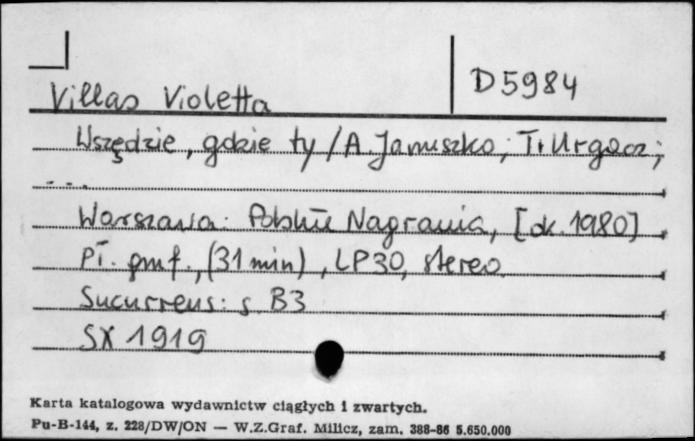 Villas Violetta
D 5984
Wszędzie, gdzie ty / A. Januszko; T. Urgacz;
...
Warszawa: Polskie Nagrania, [ok. 1980]
Pł. gmf., (31 min), LP30, stereo
Sucurrens: s. B3
SX 1919
Karta katalogowa wydawnictw ciągłych i zwartych.
Pu-B-144, z. 228/DW/ON — W.Z.Graf. Milicz, zam. 388-86 5.650.000